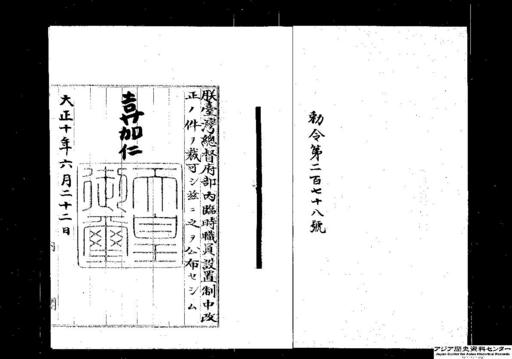 勅令第二百七十八號
朕臺灣總督府部內臨時職員設置制中改
正ノ件ヲ裁可シ茲ニ之ヲ公布セシム
嘉仁
天皇
御璽
大正十年六月二十二日
アジア歴史資料センター
Japan Center for Asian Historical Records